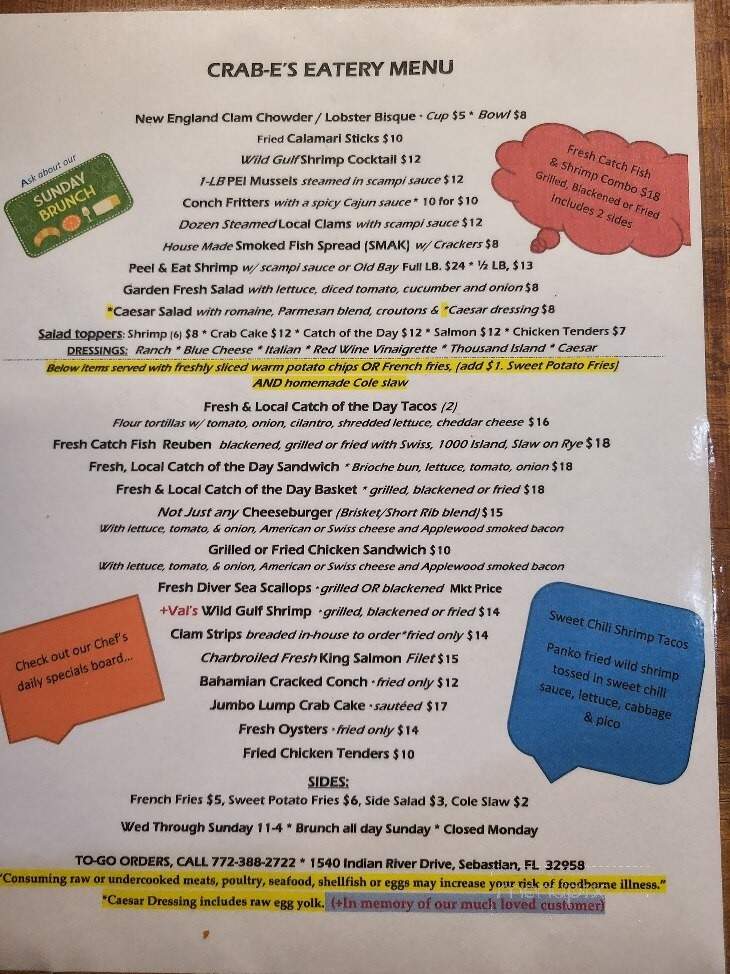 CRAB-E'S EATERY MENU
New England Clam Chowder / Lobster Bisque · Cup $5 * Bowl $8
Fried Calamari Sticks $10
Wild Gulf Shrimp Cocktail $12
1-LB PEI Mussels steamed in scampi sauce $12
Conch Fritters with a spicy Cajun sauce * 10 for $10
Dozen Steamed Local Clams with scampi sauce $12
House Made Smoked Fish Spread (SMAK) w/ Crackers $8
Peel & Eat Shrimp w/ scampi sauce or Old Bay Full LB. $24 * ½ LB, $13
Garden Fresh Salad with lettuce, diced tomato, cucumber and onion $8
*Caesar Salad with romaine, Parmesan blend, croutons & *Caesar dressing $8
Salad toppers: Shrimp (6) $8 * Crab Cake $12 * Catch of the Day $12 * Salmon $12 * Chicken Tenders $7
DRESSINGS: Ranch * Blue Cheese * Italian * Red Wine Vinaigrette * Thousand Island * Caesar
Ask about our
SUNDAY
BRUNCH
Fresh Catch Fish
& Shrimp Combo $18
Grilled, Blackened or Fried
includes 2 sides
Below items served with freshly sliced warm potato chips OR French fries, (add $1. Sweet Potato Fries)
AND homemade Cole slaw
Fresh & Local Catch of the Day Tacos (2)
Flour tortillas w/ tomato, onion, cilantro, shredded lettuce, cheddar cheese $16
Fresh Catch Fish Reuben blackened, grilled or fried with Swiss, 1000 Island, Slaw on Rye $18
Fresh, Local Catch of the Day Sandwich * Brioche bun, lettuce, tomato, onion $18
Fresh & Local Catch of the Day Basket * grilled, blackened or fried $18
Not Just any Cheeseburger (Brisket/Short Rib blend) $15
With lettuce, tomato, & onion, American or Swiss cheese and Applewood smoked bacon
Grilled or Fried Chicken Sandwich $10
With lettuce, tomato, & onion, American or Swiss cheese and Applewood smoked bacon
Fresh Diver Sea Scallops · grilled OR blackened Mkt Price
+Val's Wild Gulf Shrimp · grilled, blackened or fried $14
Clam Strips breaded in-house to order*fried only $14
Charbroiled Fresh King Salmon Filet $15
Bahamian Cracked Conch · fried only $12
Jumbo Lump Crab Cake · sautéed $17
Fresh Oysters · fried only $14
Fried Chicken Tenders $10
Check out our Chef's
daily specials board...
Sweet Chili Shrimp Tacos
Panko fried wild shrimp
tossed in sweet chili
sauce, lettuce, cabbage
& pico
SIDES:
French Fries $5, Sweet Potato Fries $6, Side Salad $3, Cole Slaw $2
Wed Through Sunday 11-4 * Brunch all day Sunday * Closed Monday
TO-GO ORDERS, CALL 772-388-2722 * 1540 Indian River Drive, Sebastian, FL 32958
"Consuming raw or undercooked meats, poultry, seafood, shellfish or eggs may increase your risk of foodborne illness."
*Caesar Dressing includes raw egg yolk. (+In memory of our much loved customer)